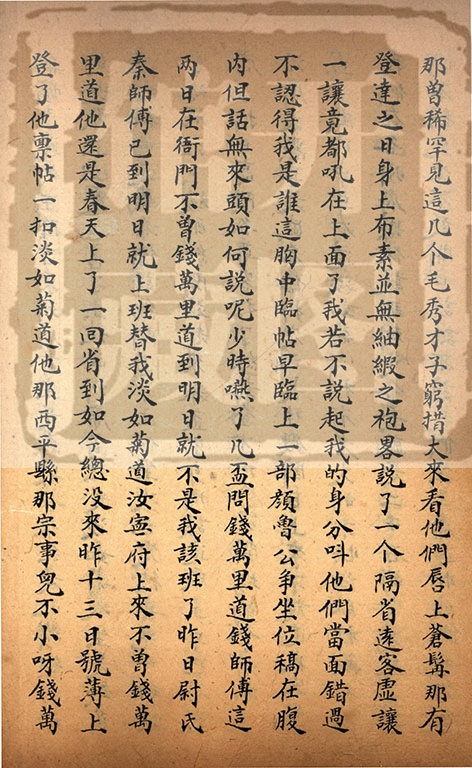 那曾稀罕見這几个毛秀才子窮措大來看他們唇上蒼髯那有
登達之日身上布素並無紬緞之袍畧説了一个隔省遠客虛讓
一讓竟都吼在上面了我若不説起我的身分呌他們當面錯過
不認得我是誰這胸中臨帖早臨上一部顔魯公爭坐位稿在腹
内但話無來頭如何説呢少時嚥了几盃問錢萬里道錢師傅這
两日在衙門不曾錢萬里道到明日就不是我該班了昨日尉氏
秦師傅已到明日就上班替我淡如菊道汝寧府上來不曾錢萬
里道他還是春天上了一回省到如今總没來昨十三日號薄上
登了他禀帖一扣淡如菊道他那西平縣那宗事兒不小呀錢萬